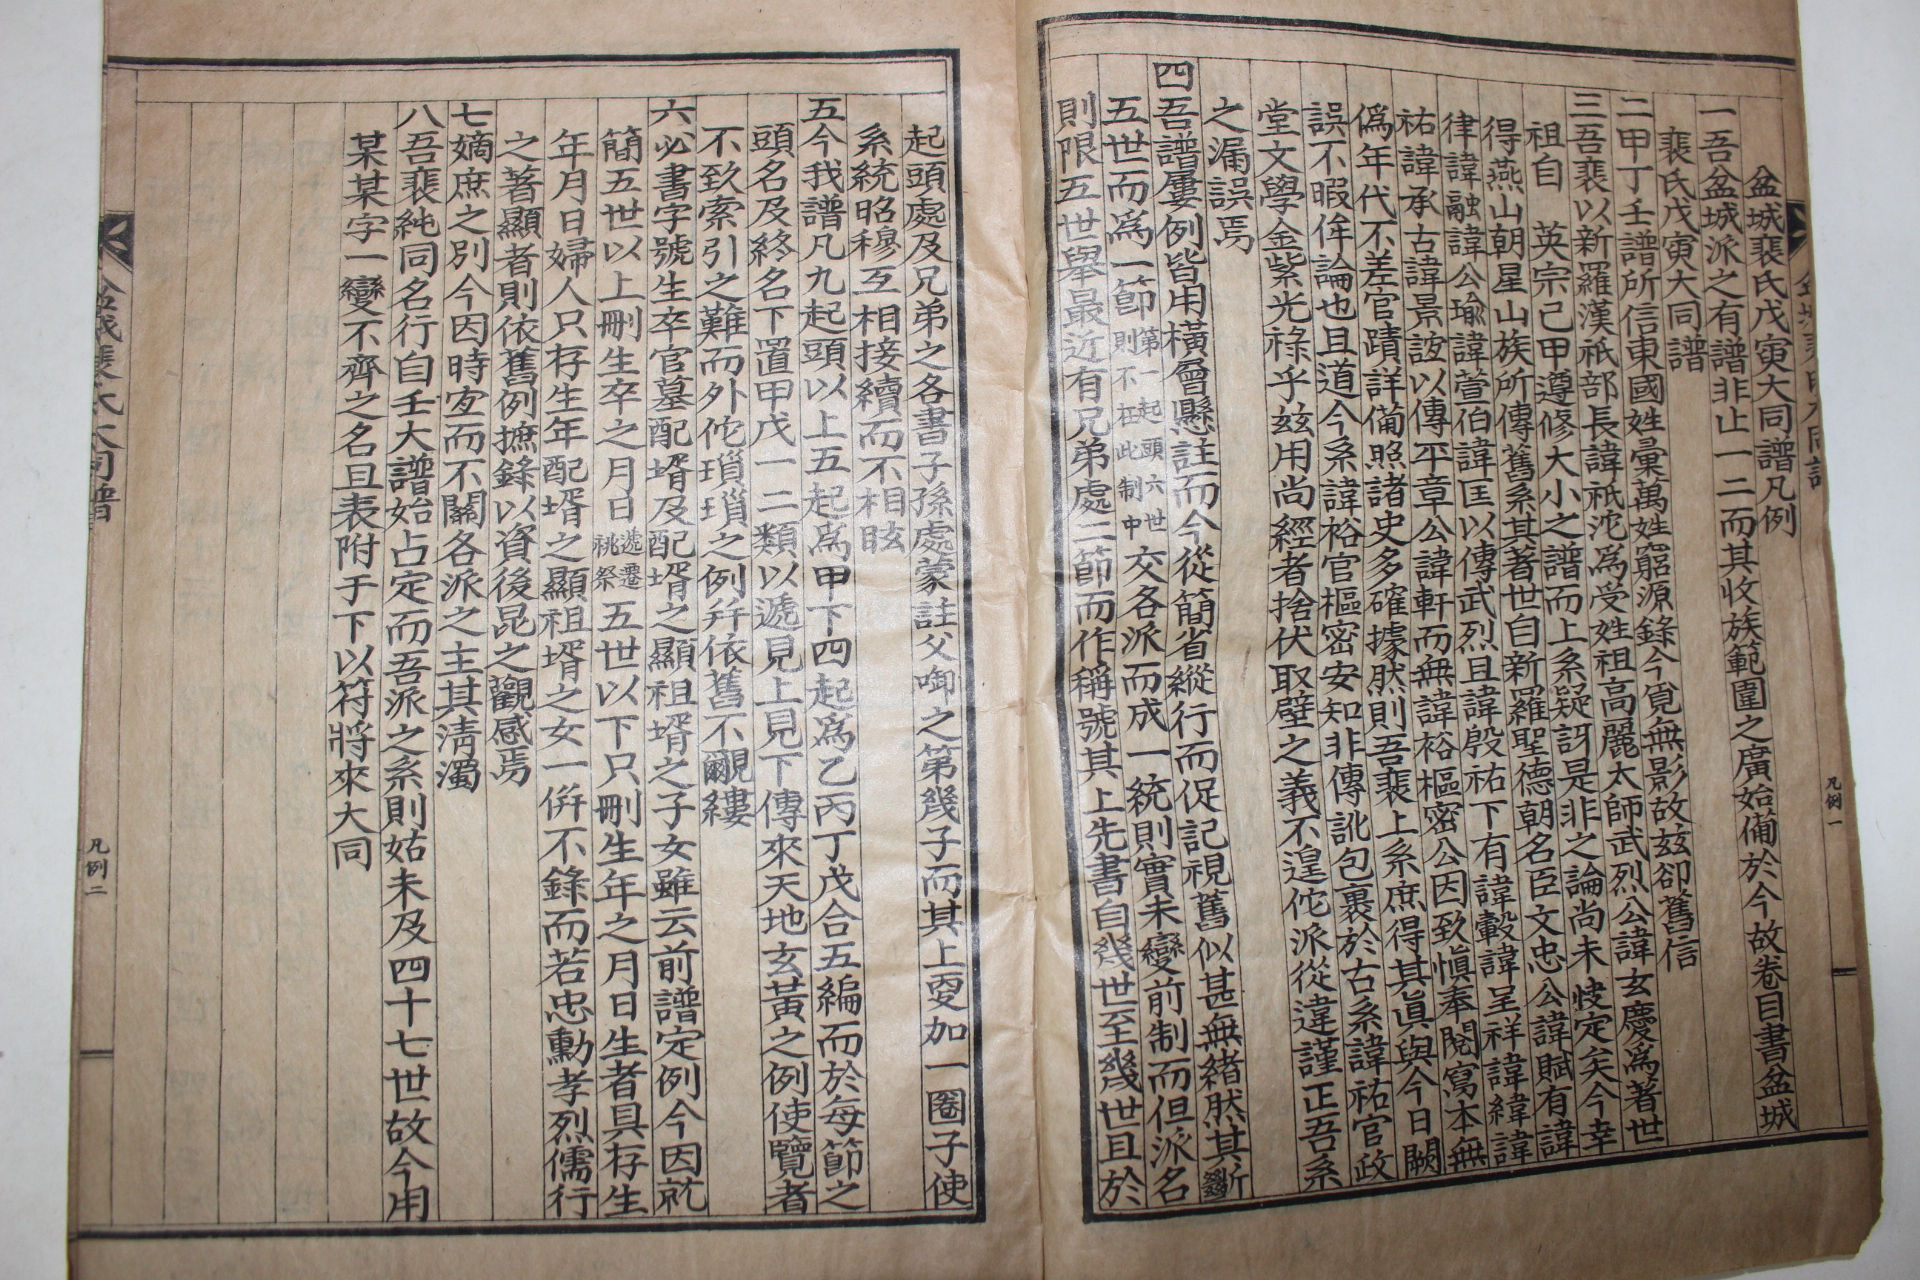 盆城裴氏戊寅大同譜凡例
一吾盆城派之有譜非止一二而其收族範圍之廣始備於今故卷目書盆城
裴氏戊寅大同譜
二甲丁壬譜所信東國姓彙萬姓窮源錄今覓無影故玆卻舊信
三吾裴以新羅漢祇部長諱祇沱爲受姓祖高麗太師武烈公諱玄慶爲著世
祖自 英宗己甲遵修大小之譜而上系疑訝是非之論尚未快定矣今幸
得燕山朝星山族所傳舊系其著世自新羅聖德朝名臣文忠公諱賦有諱
律諱融諱公瑜諱萱伯諱匡以傳武烈且諱殷祐下有諱轂諱呈祥諱緯諱
祐諱承古諱景詖以傳平章公諱軒而無諱裕樞密公因致愼奉閱寫本無
僞年代不差官蹟詳備照諸史多確據然則吾裴上系庶得其眞與今日闕
誤不暇侔論也且道今系諱裕官樞密安知非傳訛包裹於古系諱祐官政
堂文學金紫光祿乎玆用尚經者捨伏取壁之義不遑佗派從違謹正吾系
之漏誤焉
四吾譜屢例皆用橫層懸註而今從簡省縱行而促記視舊似甚無緖然其斷
五世而爲一節第一起頭六世則不在此制中交各派而成一統則實未變前制而但派名
則限五世擧最近有兄弟處二節而作稱號其上先書自幾世至幾世且於
起頭處及兄弟之各書子孫處蒙註父啣之第幾子而其上更加一圈子使
系統昭穆互相接續而不相眩
五今我譜凡九起頭以上五起爲甲下四起爲乙丙丁戊合五編而於每節之
頭名及終名下置甲戊一二類以遞見上見下傳來天地玄黃之例使覽者
不致索引之難而外佗瑣瑣之例幷依舊不覼縷
六必書字號生卒官墓配壻及配壻之顯祖壻之子女雖云前譜定例今因就
簡五世以上刪生卒之月日遞遷祧祭五世以下只刪生年之月日生者具存生
年月日婦人只存生年配壻之顯祖壻之女一倂不錄而若忠勳孝烈儒行
之著顯者則依舊例摭錄以資後昆之觀感焉
七嫡庶之別今因時宜而不關各派之主其淸濁
八吾裴純同名行自壬大譜始占定而吾派之系則姑未及四十七世故今用
某某字一變不齊之名且表附于下以符將來大同
凡例一
凡例二